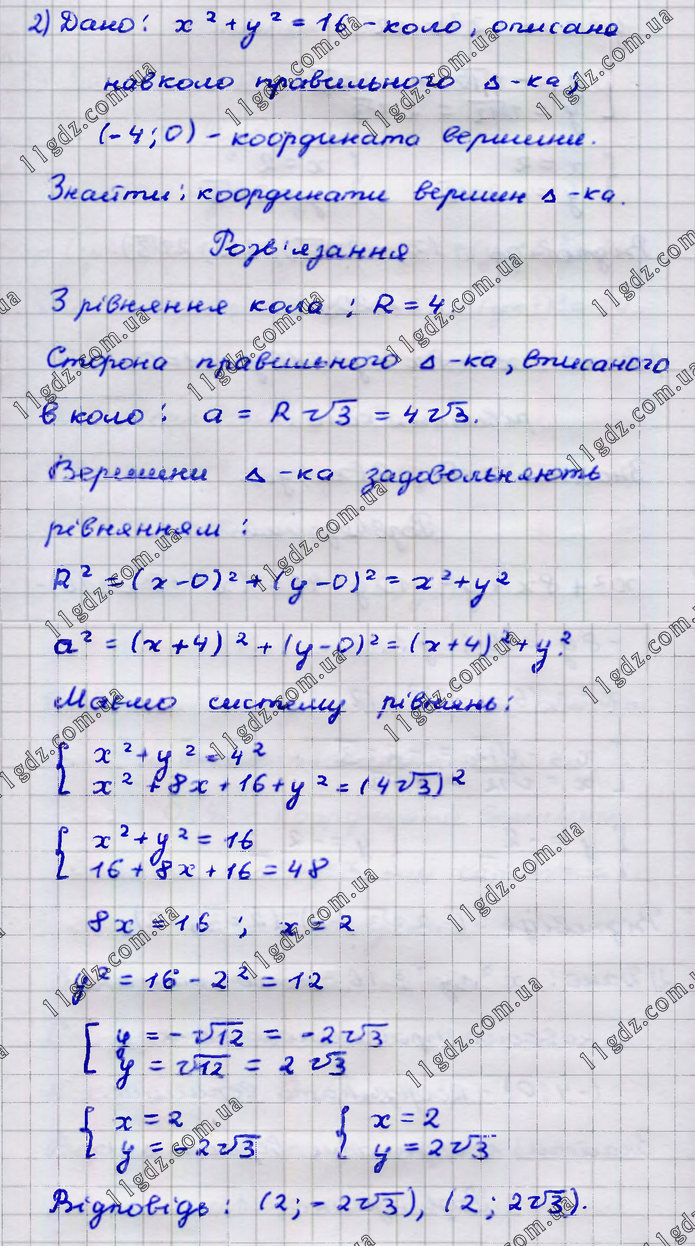 2) Дано: x² + y² = 16 - коло, описане
навколо правильного Δ-ка;
(-4; 0) - координата вершини.
Знайти: координати вершин Δ-ка.
Розв'язання
З рівняння кола: R = 4.
Сторона правильного Δ-ка, вписаного
в коло: a = R√3 = 4√3.
Вершини Δ-ка задовольняють
рівнянням:
R² = (x-0)² + (y-0)² = x² + y²
a² = (x+4)² + (y-0)² = (x+4)² + y².
Маємо систему рівнянь:
{ x² + y² = 4²
x² + 8x + 16 + y² = (4√3)²
{ x² + y² = 16
16 + 8x + 16 = 48
8x = 16; x = 2
y² = 16 - 2² = 12
[ y = -√12 = -2√3
y = √12 = 2√3
{ x = 2 { x = 2
y = -2√3 y = 2√3
Відповідь: (2; -2√3), (2; 2√3).
11gdz.com.ua